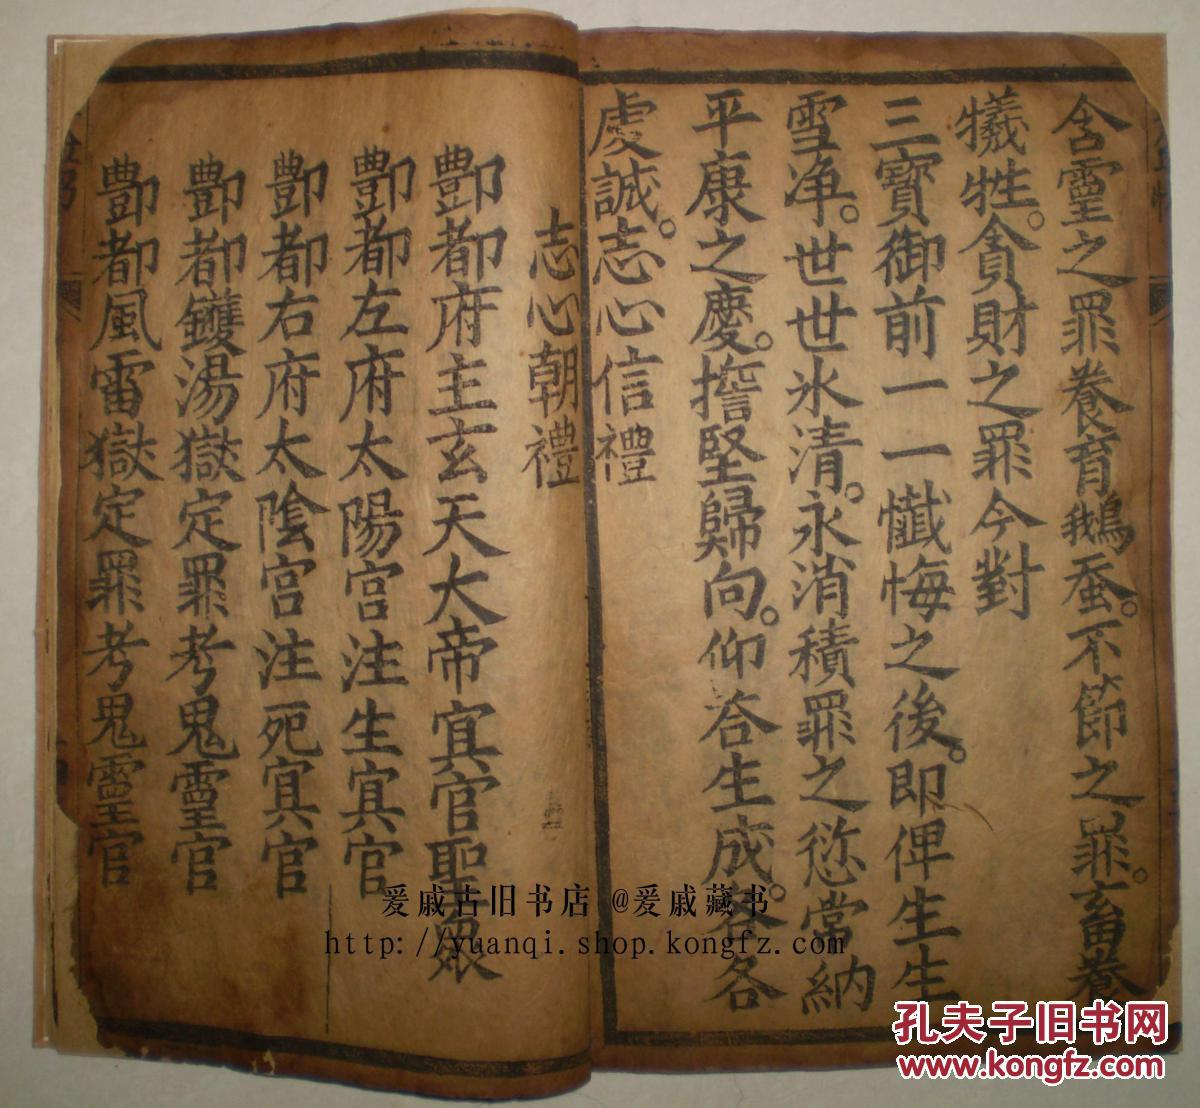 含靈之罪養育鵝蚕。不節之罪。畜養
犧牲。貪財之罪今對
三寶御前一一懺悔之後。即俾生生
雪净。世世氷清。永消積罪之愆常納
平康之慶。擔堅歸向。仰答生成。各各
虔誠。志心信禮
志心朝禮
酆都府主玄天大帝冥官聖眾
酆都左府太陽宫注生冥官
酆都右府太陰宫注死冥官
酆都鑊湯獄定罪考鬼靈官
酆都風雷獄定罪考鬼靈官
爰戚古旧书店 @爰戚藏书
http://yuanqi.shop.kongfz.com
孔夫子旧书网
www.kongfz.com